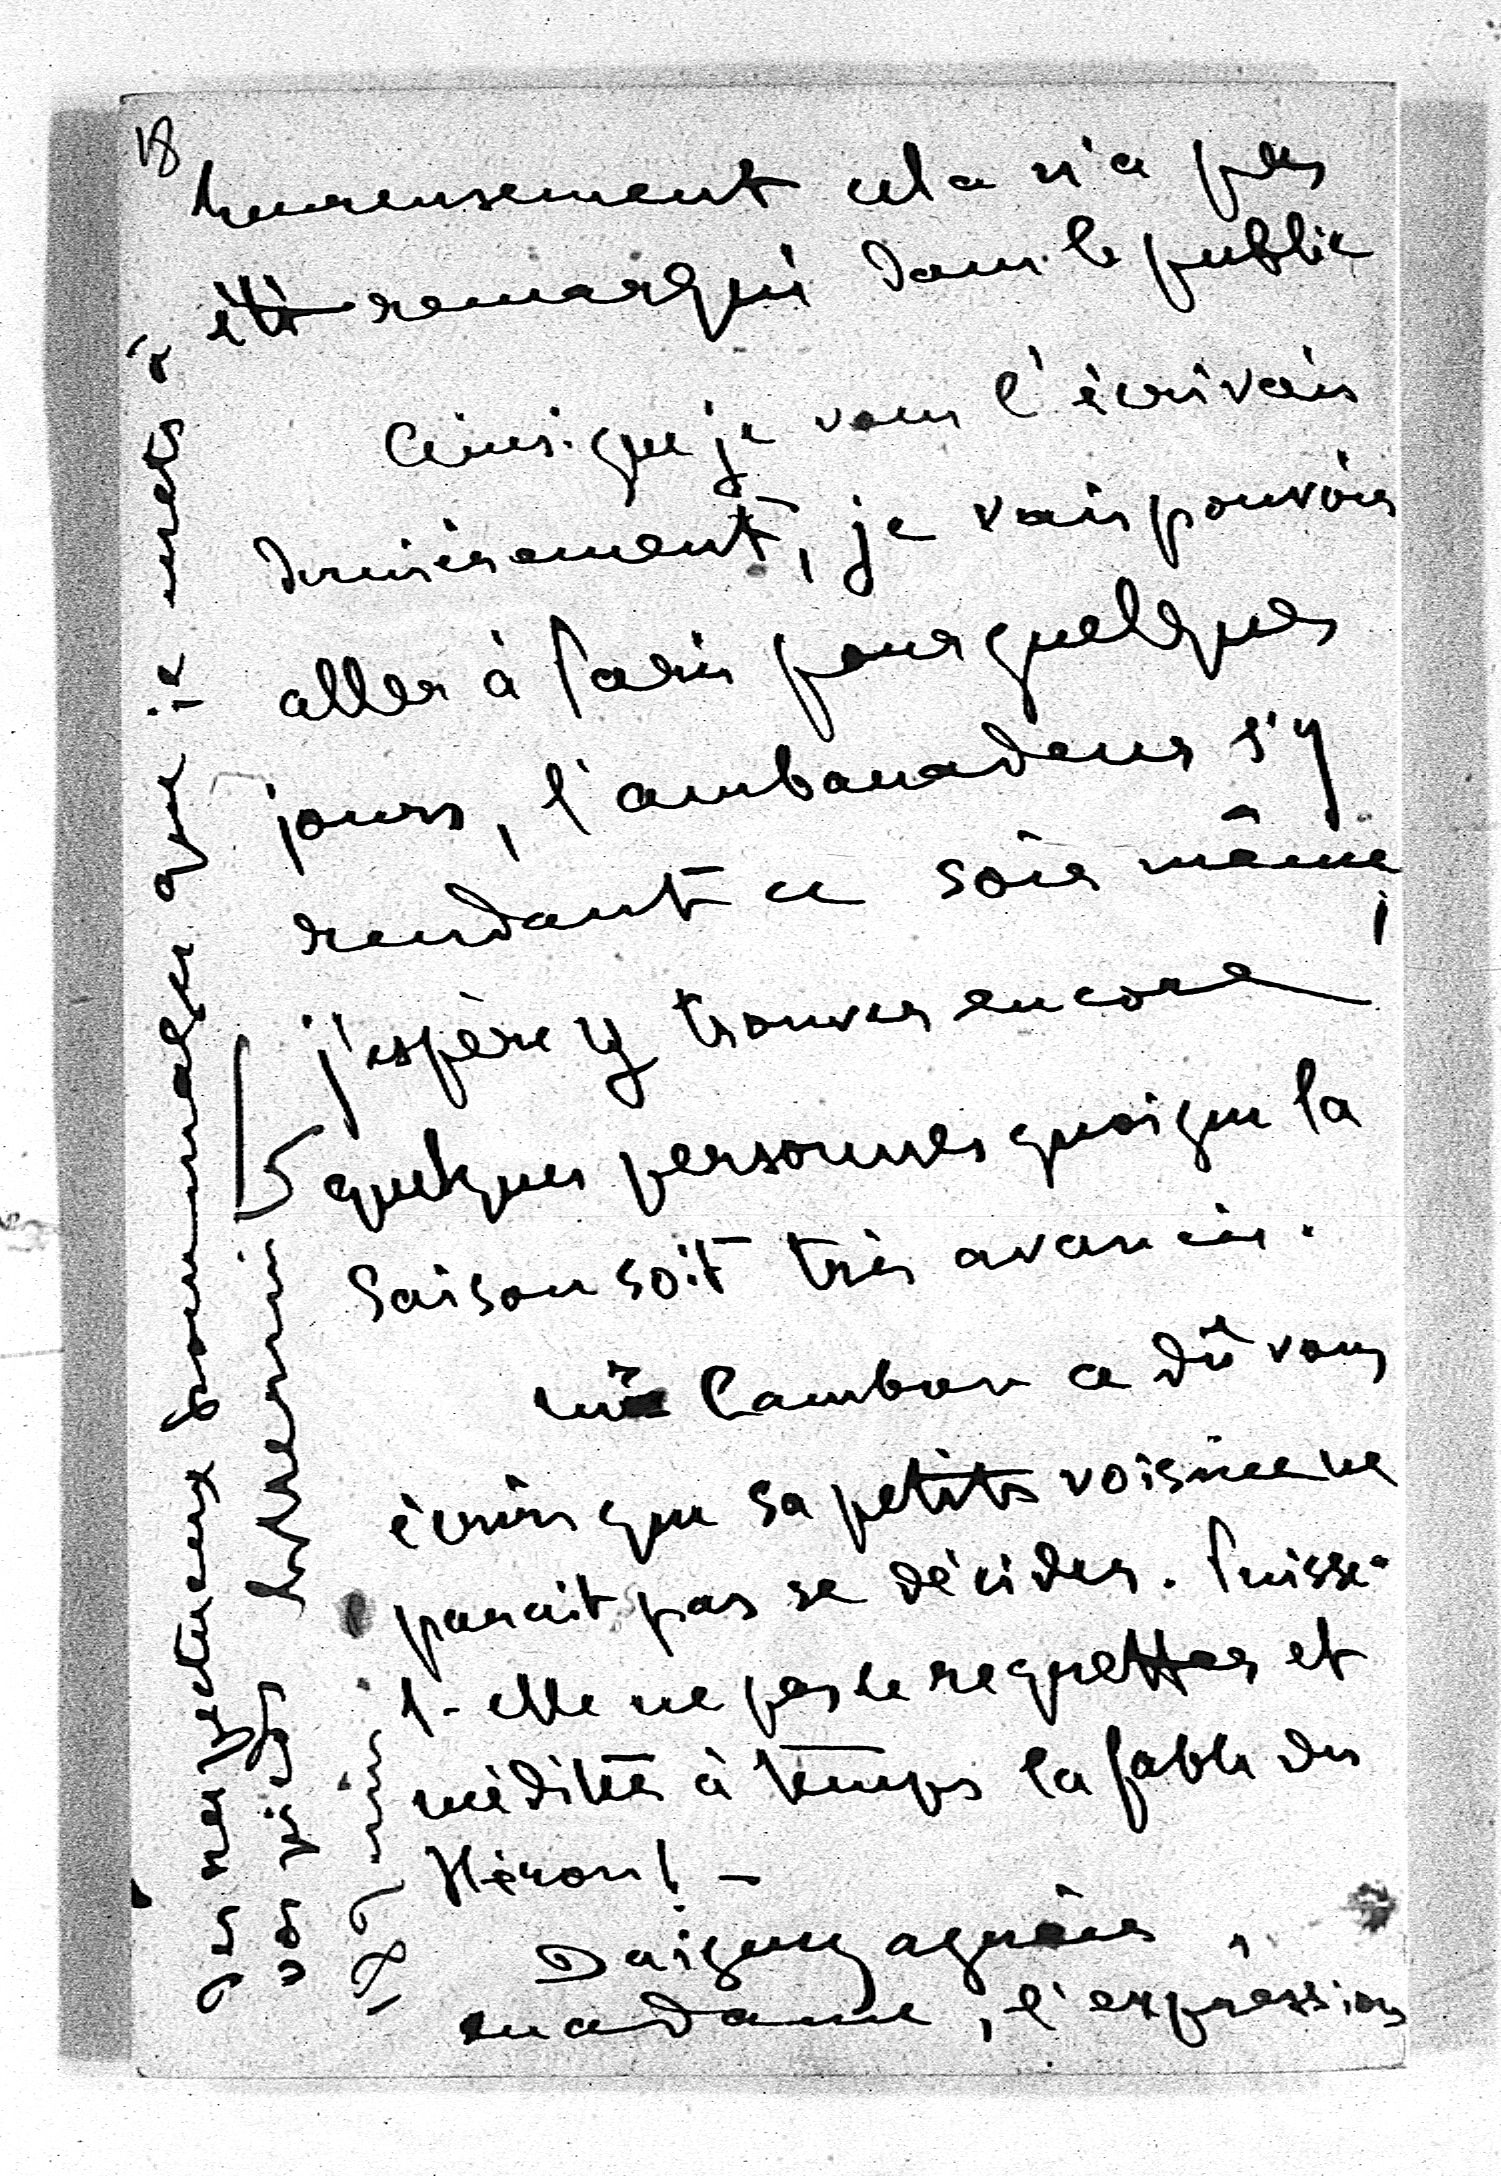 18
heureusement cela n'a pas
été remarqué dans le public
Ainsi que je vous l'écrivais
dernièrement, je vais pouvoir
aller à Paris pour quelques
jours, l'ambassadeur s'y
rendant ce soir même ;
j'espère y trouver encore
quelques personnes quoique la
saison soit très avancée.
Mme Cambon a dû vous
écrire que sa petite voisine ne
parait pas se décider. Puisse-
t-elle ne pas le regretter et
méditer à temps la fable du
Héron ! –
Daignez agréer,
madame, l'expression
des respectueux hommages que je mets à
vos pieds
18 juin